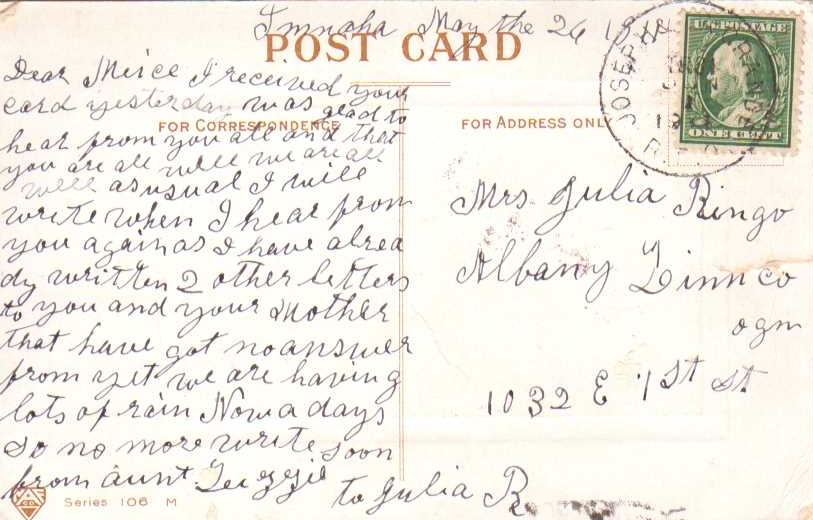 Imnaha May the 26 191
POST CARD
U.S. POSTAGE
ONE CENT
JOSEPH
FOR CORRESPONDENCE
FOR ADDRESS ONLY
Dear Neice I received your
card yesterday was glad to
hear from you all and that
you are all well we are all
well as usual I will
write when I hear from
you again as I have alrea
dy written 2 other letters
to you and your Mother
that have got no answer
from yet we are having
lots of rain Now a days
so no more write soon
from aunt Lizzie
to Julia R
Mrs Julia Ringo
Albany Linn co
ogn
1032 E 1st st
Series 106 M